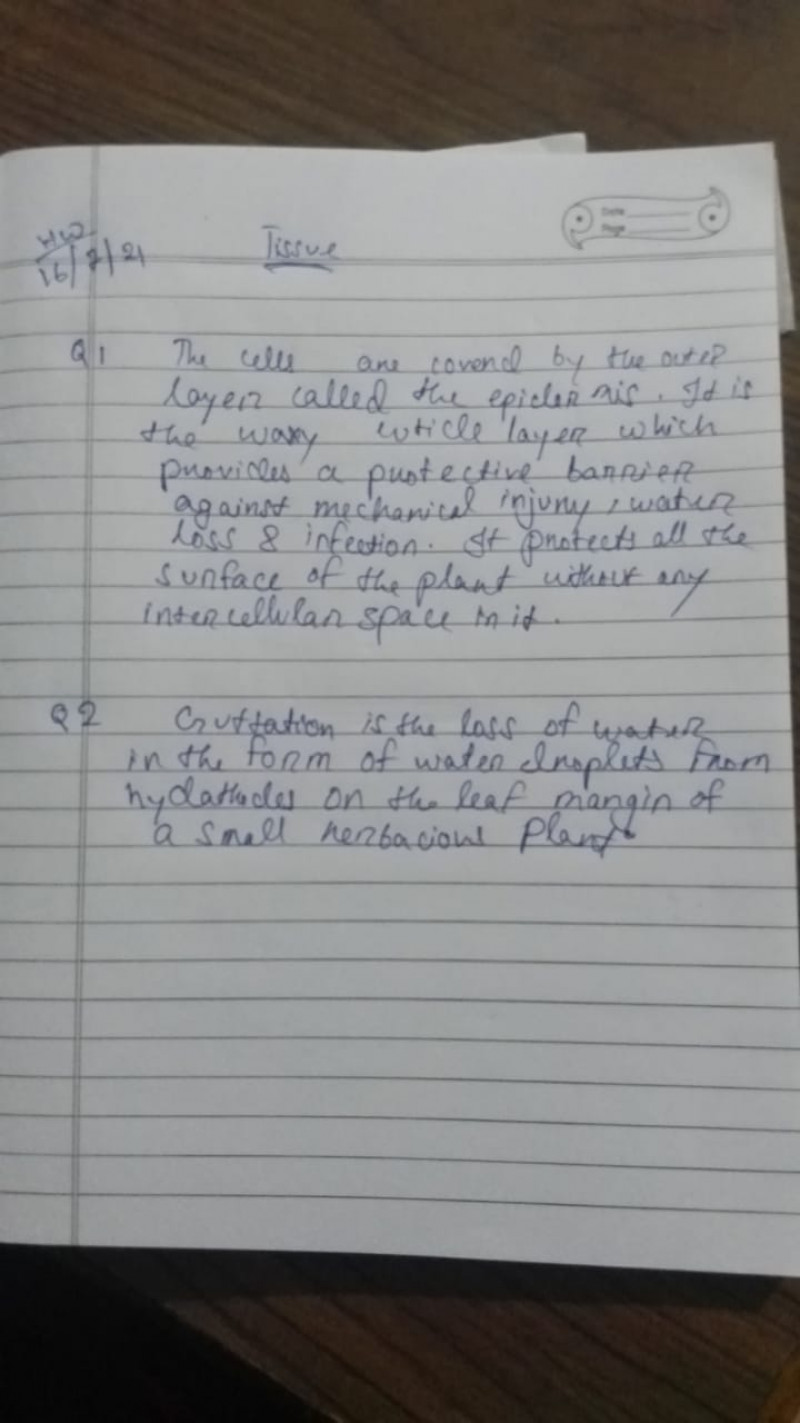 HW
16/7/21
Tissue
Date
Page
Q1 The cells are coverd by the outer
layer called the epidermis. It is
the waxy cuticle layer which
provides a protective barrier
against mechanical injury, water
loss & infection. It protects all the
surface of the plant without any
intercellular space in it.
Q2 Guttation is the loss of water
in the form of water droplets from
hydathodes on the leaf margin of
a small herbacious plant